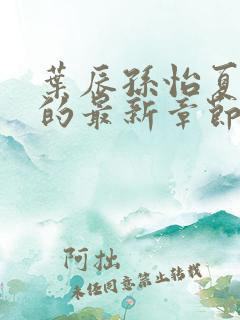 葉辰孫怡夏
的最新章節
阿拙
未经同意禁止转载